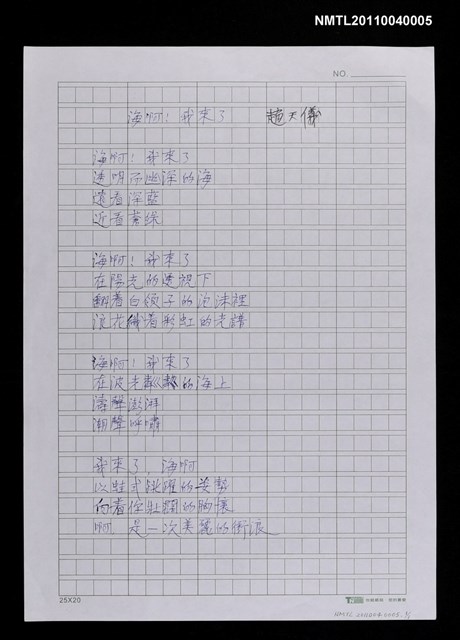 NMTL20110040005
NO.
海啊！我來了 趙天儀
海啊！我來了
透明而幽深的海
遠看深藍
近看素綠
海啊！我來了
在陽光的透視下
翻著白領子的泡沫裡
浪花織著彩虹的光譜
海啊！我來了
在波光粼粼的海上
濤聲澎湃
潮聲呼嘯
我來了，海啊
以蛙式跳躍的姿勢
向著你壯闊的胸懷
啊 是一次美麗的衝浪
25X20